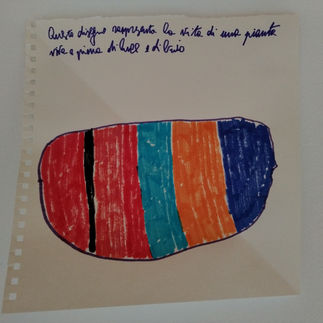 Questo disegno rappresenta la vita di una pianta
vita e piena di luce e di buio